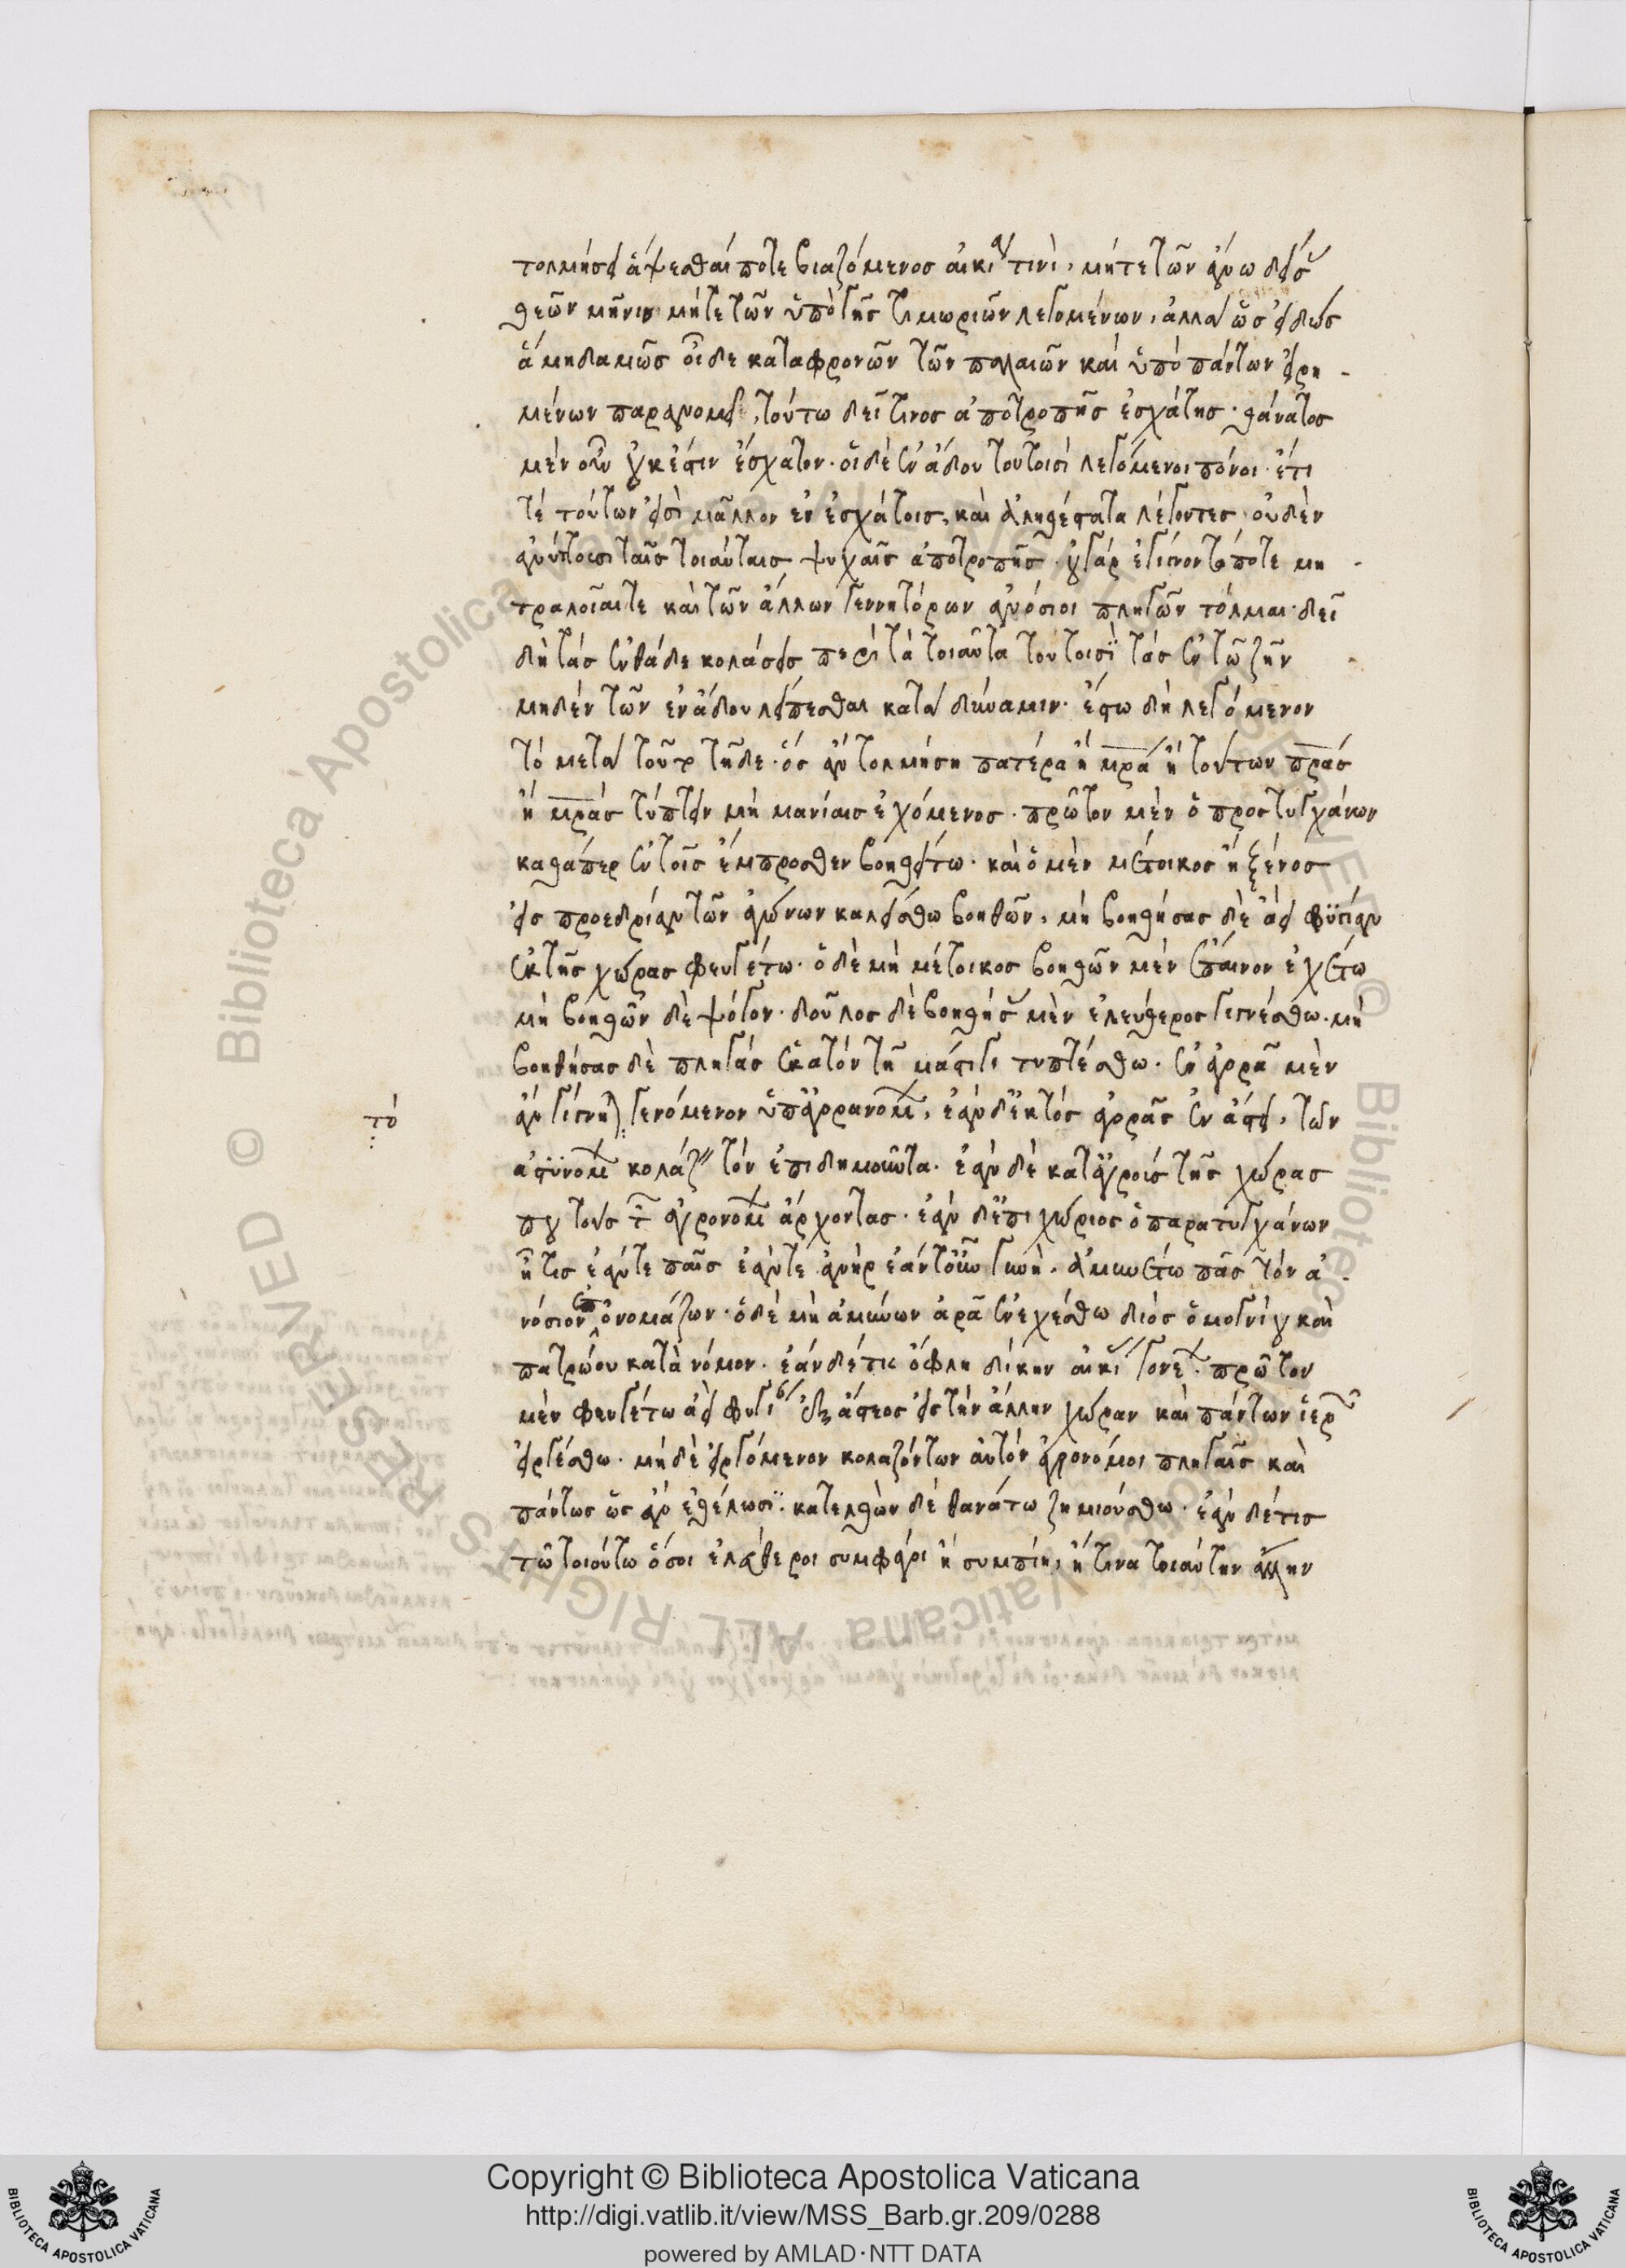 τολμήσει ἅψεσθαί ποτε βιαζόμενος αἰκίᾳ τινὶ, μήτε τῶν ἄνω δείσας
θεῶν μῆνιν μήτε τῶν ὑπὸ γῆς τιμωριῶν λεγομένων, ἀλλὰ ὡς εἰδὼς
ἃ μηδαμῶς οἶδε καταφρονῶν τῶν παλαιῶν καὶ ὑπὸ πάντων εἰρη-
μένων παρανομεῖ, τούτω δεῖ τινος ἀποτροπῆς ἐσχάτης· θάνατος
μὲν οὖν οὐκ ἔστιν ἔσχατον· οἱ δὲ ἐν ἅδου τούτοισι λεγόμενοι πόνοι· ἔτι
τέ τούτων εἰσὶ μᾶλλον ἐν ἐσχάτοις, καὶ ἀληθέστατα λέγοντες οὐδὲν
ἀνύτουσι ταῖς τοιαύταις ψυχαῖς ἀποτροπῆς· οὐ γὰρ ἐγίγνοντό ποτε μη-
τραλοῖαί τε καὶ τῶν ἄλλων γεννητόρων ἀνόσιοι πληγῶν τόλμαι· δεῖ
δὴ τὰς ἐνθάδε κολάσεις περὶ τὰ τοιαῦτα τούτοισι τὰς ἐν τῷ ζῆν
μηδὲν τῶν ἐν ἅδου λείπεσθαι κατὰ δύναμιν· ἔστω δὴ λεγόμενον
τὸ μετὰ τοῦτο τῇδε· ὃς ἂν τολμήση πατέρα ἢ μρα ἢ τούτων πρας
ἢ μρας τύπτειν μὴ μανίαις ἐχόμενος· πρῶτον μὲν ὁ προστυγχάνων
καθάπερ ἐν τοῖς ἔμπροσθεν βοηθείτω· καὶ ὁ μὲν μέτοικος ἢ ξένος
εἰς προεδρίαν τῶν ἀγώνων καλείσθω βοηθῶν, μὴ βοηθήσας δὲ ἀεὶ φυγίαν
ἐκ τῆς χώρας φευγέτω· ὁ δὲ μὴ μέτοικος βοηθῶν μὲν ἔπαινον ἐχέτω
μὴ βοηθῶν δὲ ψόγον· δοῦλος δὲ βοηθήσας μὲν ἐλεύθερος γιγνέσθω· μὴ
βοηθήσας δὲ πληγὰς ἑκατὸν τῇ μάστιγι τυπτέσθω· ἐν ἀγορᾷ μὲν
ἂν γίγνηται γενόμενον ὑπ' ἀγορανόμων, ἐὰν δ' ἐκτὸς ἀγορᾶς ἐν ἄστει, τῶν
τὸ
ἀστυνόμων κολάζειν τὸν ἐπιδημοῦντα· ἐὰν δὲ κατ' ἀγροὺς τῆς χώρας
που τοὺς τῶν ἀγρονόμων ἄρχοντας· ἐὰν δ' ἐπιχώριος ὁ παρατυγχάνων
ἦ τις ἐάν τε παῖς ἐάν τε ἀνὴρ ἐάν τ' οὖν γυνὴ, ἀμυνέτω πᾶς τὸν ἀ-
νόσιον ἐπονομάζων· ὁ δὲ μὴ ἀμύνων ἀρᾷ ἐνεχέσθω διὸς ὁμογνίου καὶ
πατρῴου κατὰ νόμον· ἐὰν δέ τις ὄφλη δίκην αἰκίας γονέων· πρῶτον
μὲν φευγέτω ἀειφυγίαν ἐξ ἄστεος εἰς τὴν ἄλλην χώραν καὶ πάντων ἱερῶν
εἰργέσθω· μὴ δὲ εἰργόμενον κολαζόντων αὐτὸν ἀγρονόμοι πληγαῖς καὶ
πάντως ὡς ἂν ἐθέλωσι· κατελθὼν δὲ θανάτω ζημιούσθω· ἐὰν δέ τις
τῷ τοιούτω ὅσοι ἐλεύθεροι συμφάγη ἢ συμπίη, ἤ τινα τοιαύτην ἄλλην
Copyright © Biblioteca Apostolica Vaticana
http://digi.vatlib.it/view/MSS_Barb.gr.209/0288
powered by AMLAD·NTT DATA